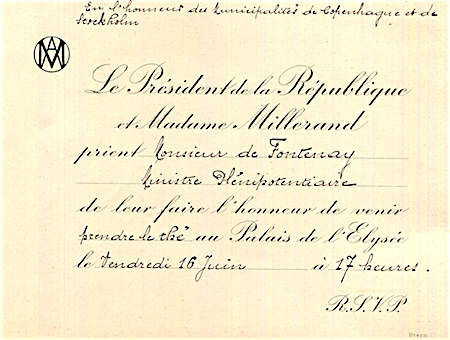 En l'honneur des Municipalités de Copenhague et de
Stockholm
AM
Le Président de la République
et Madame Millerand
prient Monsieur de Fontenay
Ministre Plénipotentiaire
de leur faire l'honneur de venir
prendre le thé au Palais de l'Elysée
le Vendredi 16 Juin à 17 heures.
R.S.V.P.